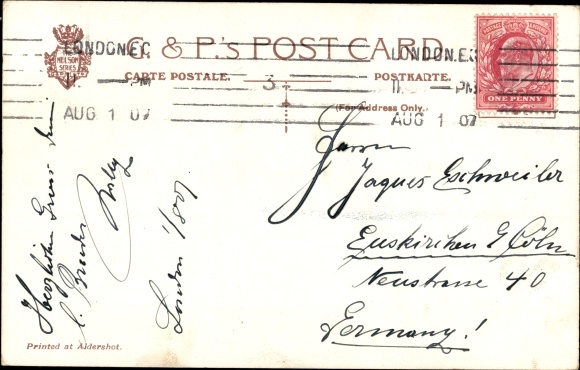 G. & P.'s POST CARD.
NELSON SERIES
CARTE POSTALE.
POSTKARTE.
(For Address Only.)
LONDON.E.C
11 - PM
AUG 1 07
3
LONDON.E.C
11 - PM
AUG 1 07
ONE PENNY
Herrn
Jaques Eschweiler
Euskirchen b/ Cöln
Neustrasse 40
Germany!
Herzlichen Gruss
Bruder
London 1/8 07.
Printed at Aldershot.